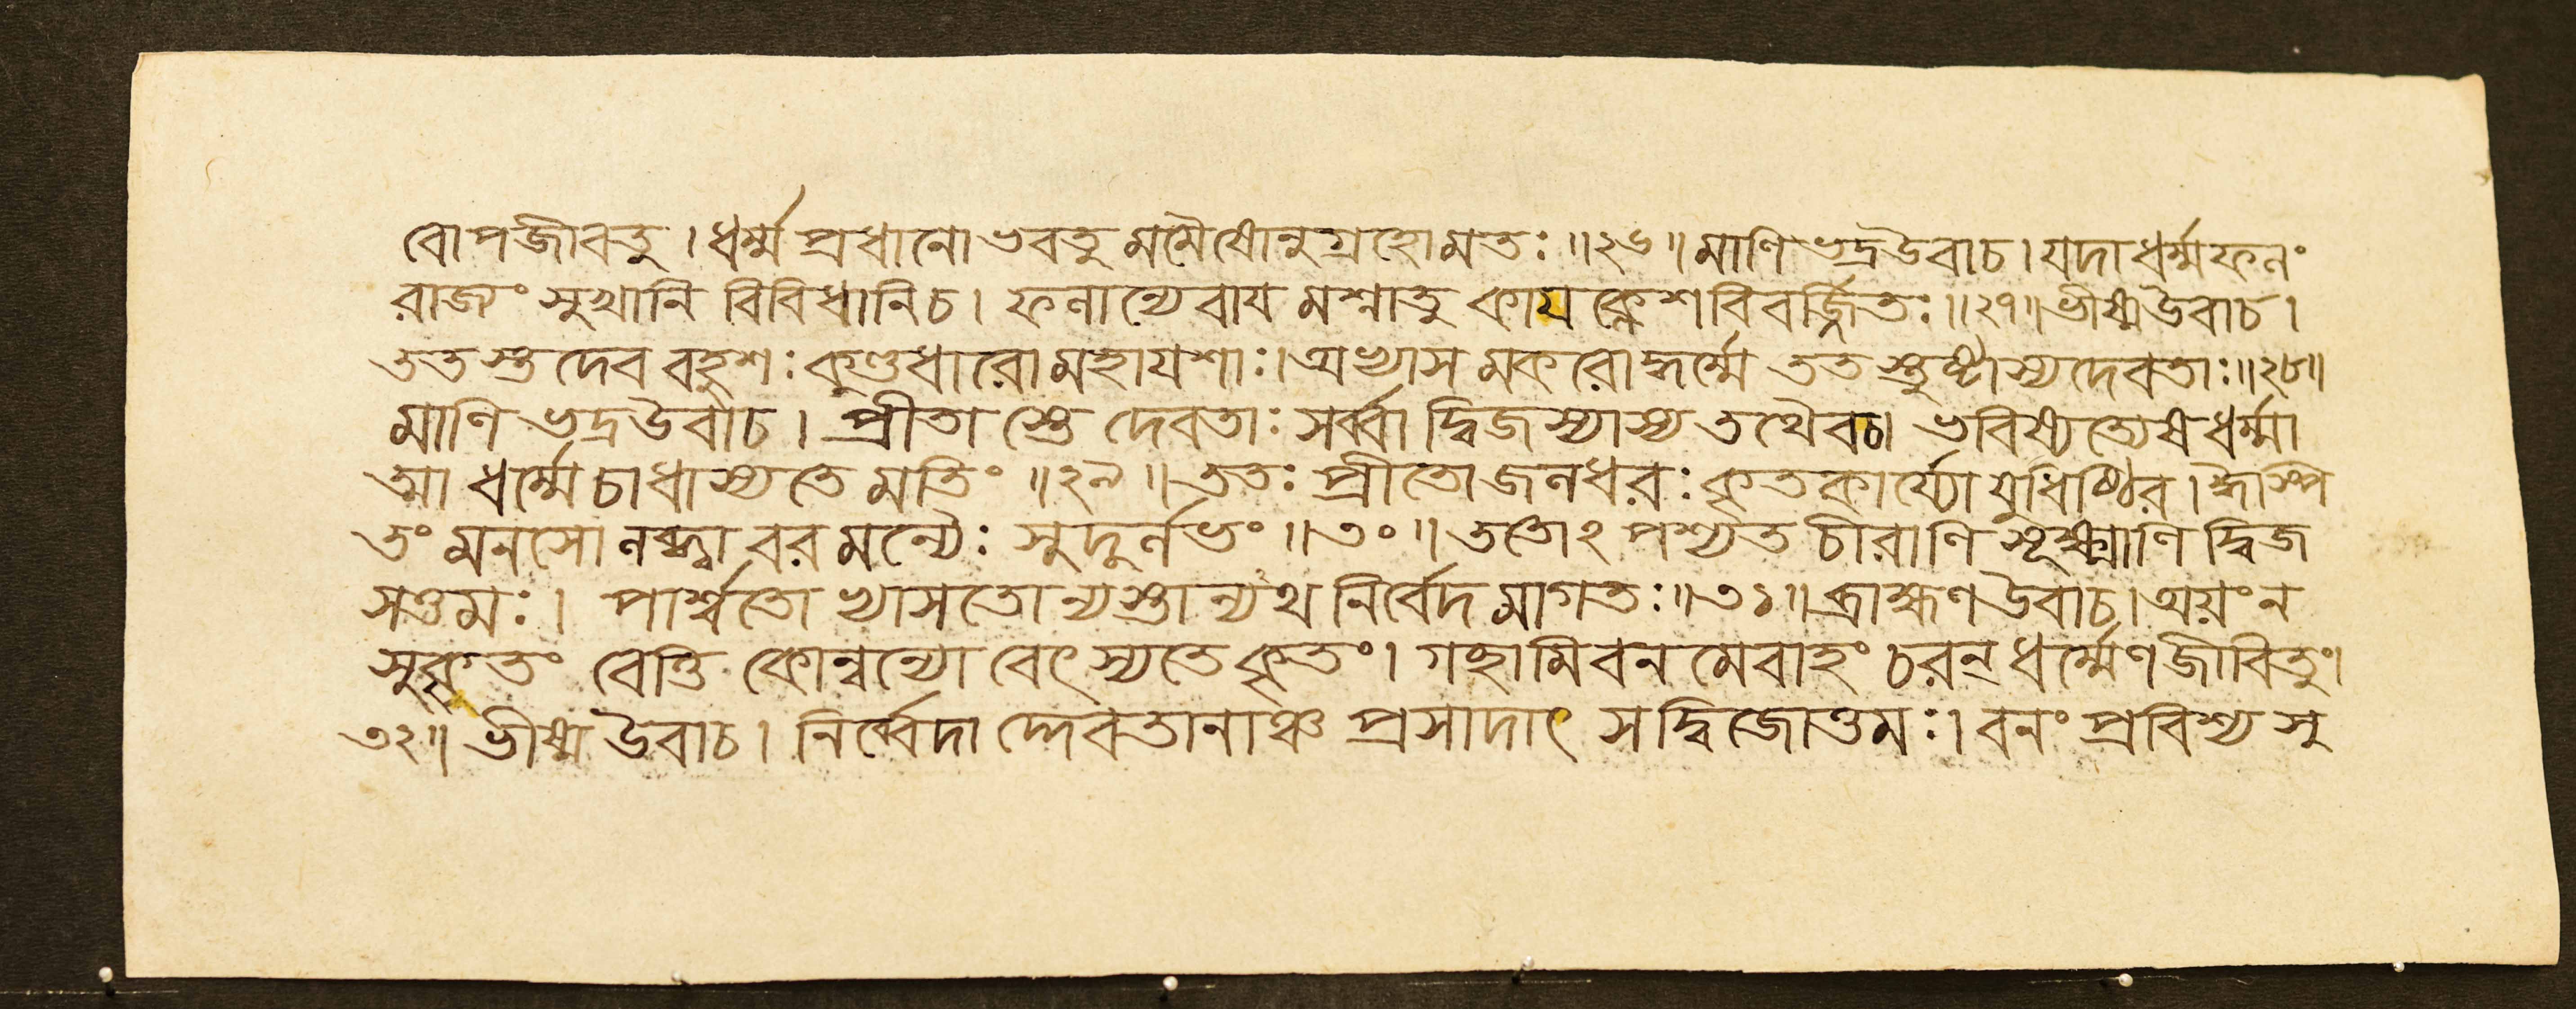 বোপজীবতু । ধর্ম্মপ্রধানো ভবতু মমৈষোনুগ্রহোমতঃ ॥২৬॥ মাণিভদ্রউবাচ । যদাধর্ম্মফলং
রাজ্যং সুখানি বিবিধানিচ । ফলান্যেবায়মশ্নাতু কায়ক্লেশবিবর্জ্জিতঃ ॥২৭॥ ভীষ্মউবাচ ।
ততস্তদেব বহুশঃ কুণ্ডধারো মহাযশাঃ । অভ্যাসমকরোদ্ধর্ম্মে ততস্তুষ্টাস্যদেবতাঃ ॥২৮॥
মাণিভদ্রউবাচ । প্রীতাস্তে দেবতাঃ সর্ব্বা দ্বিজস্যাস্য তথৈবচ । ভবিষ্যত্যেষধর্ম্মা
ত্মা ধর্ম্মেচাধাস্যতে মতিং ॥২৯॥ ততঃ প্রীতোজলধরঃ কৃতকার্য্যো যুধিষ্ঠির । ঈপ্সি
তং মনসোলব্ধ্বা বরমন্যৈঃ সুদুর্লভং ॥৩০॥ ততোঽপশ্যত চীরাণি সূক্ষ্মাণি দ্বিজ
সত্তমঃ । পার্শ্বতোভ্যাসতোন্যস্তান্যথ নির্বেদমাগতঃ ॥৩১॥ ব্রাহ্মণউবাচ । অয়ংন
সুকৃতং বেত্তি কোন্বন্যো বেৎস্যতেকৃতং । গচ্ছামিবনমেবাহং চরন্ধর্ম্মেণজীবিতুং ।
৩২॥ ভীষ্মউবাচ । নির্ব্বেদাদ্দেবতানাঞ্চ প্রসাদাৎ সদ্বিজোত্তমঃ । বনং প্রবিশ্য সু